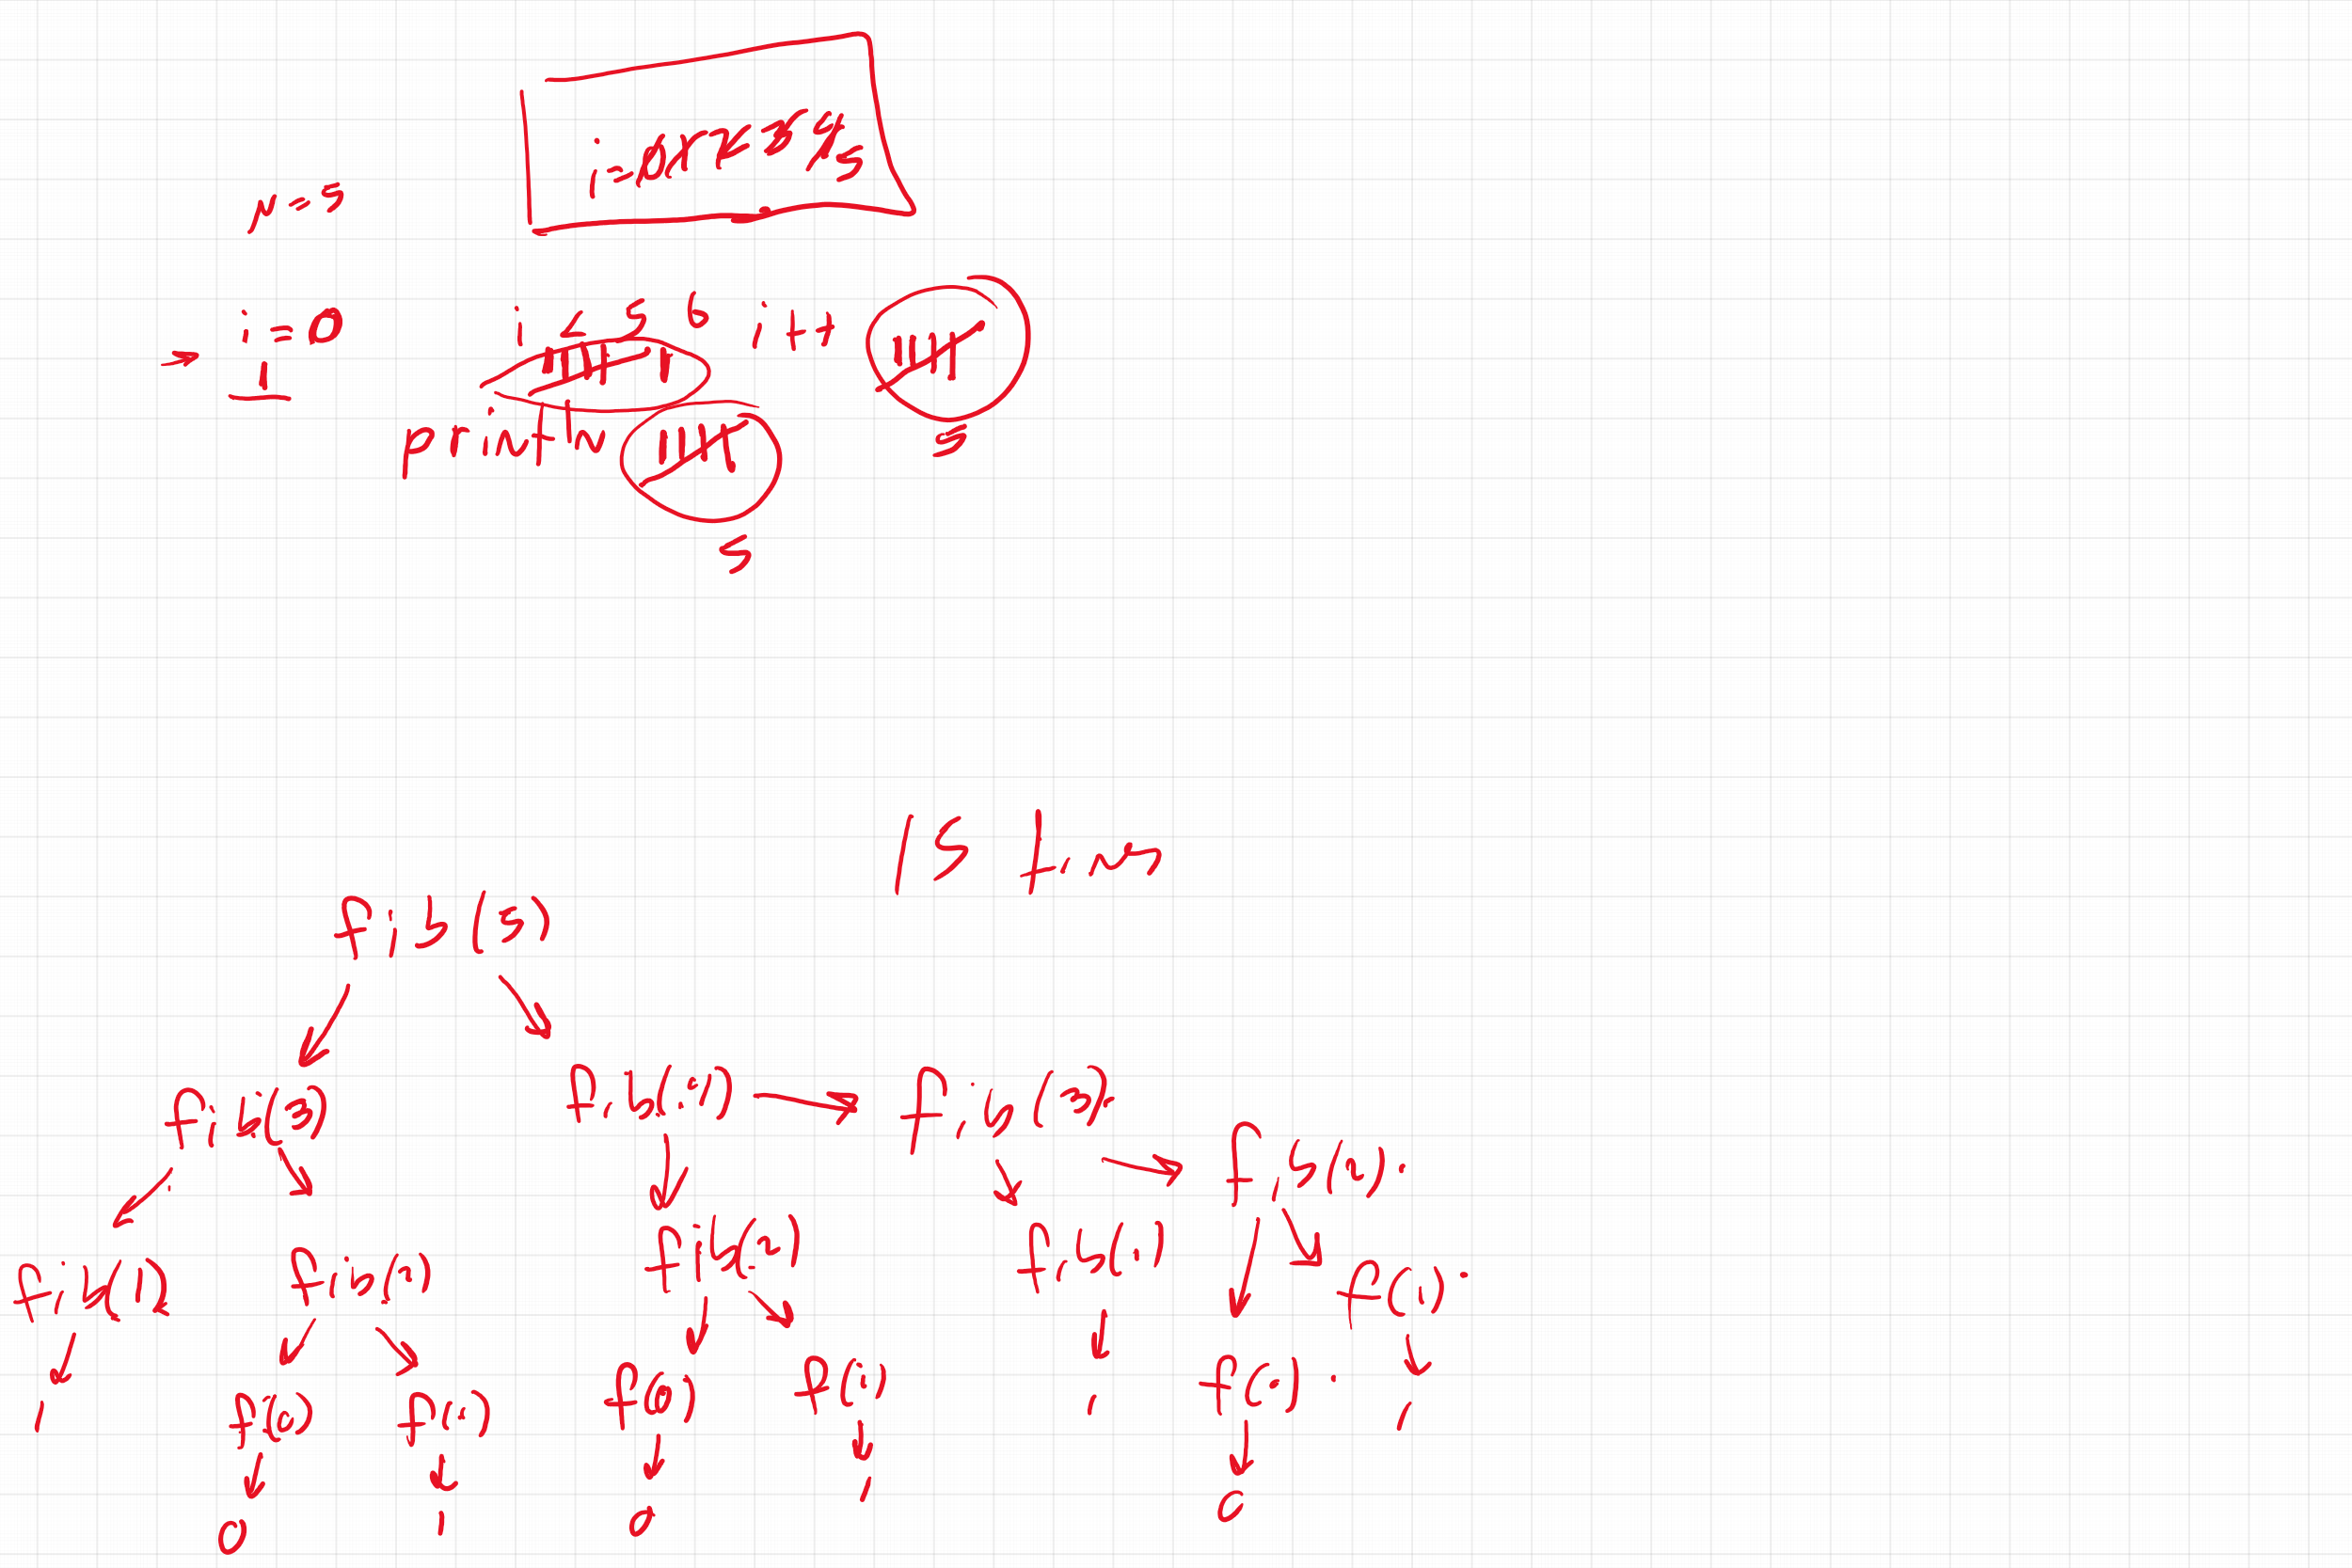 i=0 1 2 3 4 5
N=5
i=0 i<5 6 i++
1 5
println
5
15 times
fib(5)
fib(3) fib(4) fib(3) fib(2)
fib(1) fib(2) fib(2) fib(1) f(1)
f(0) f(1) f(0) f(1) 1 f(0) 1
1
0 1 0 1 0